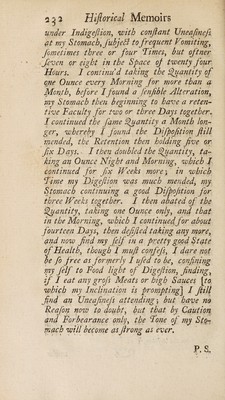 232 Hiſtorical Memoirs
under Indigeſtion, with conſtant Uneaſineſs
at my Stomach, ſubject to frequent Vomiting,
ſometimes three or four Times, but oftner
ſeven or eight in the Space of twenty four
Hours. I continu'd taking the Quantity of
one Ounce every Morning for more than a
Month, before I found a ſenſible Alteration,
my Stomach then beginning to have a reten-
tive Faculty for two or three Days together.
I continued the ſame Quantity a Month lon-
ger, whereby I found the Diſpoſition ſtill
mended, the Retention then holding five or
ſix Days. I then doubled the Quantity, ta-
king an Ounce Night and Morning, which I
continued for ſix Weeks more; in which
Time my Digeſtion was much mended, my
Stomach continuing a good Diſpoſition for
three Weeks together. I then abated of the
Quantity, taking one Ounce only, and that
in the Morning, which I continued for about
fourteen Days, then deſiſted taking any more,
and now find my ſelf in a pretty good State
of Health, though I muſt confeſs, I dare not
be ſo free as formerly I uſed to be, confining
my ſelf to Food light of Digeſtion, finding,
if I eat any groſs Meats or high Sauces [to
which my Inclination is prompting] I ſtill
find an Uneaſineſs attending; but have no
Reaſon now to doubt, but that by Caution
and Forbearance only, the Tone of my Sto-
mach will become as ſtrong as ever.
P. S.